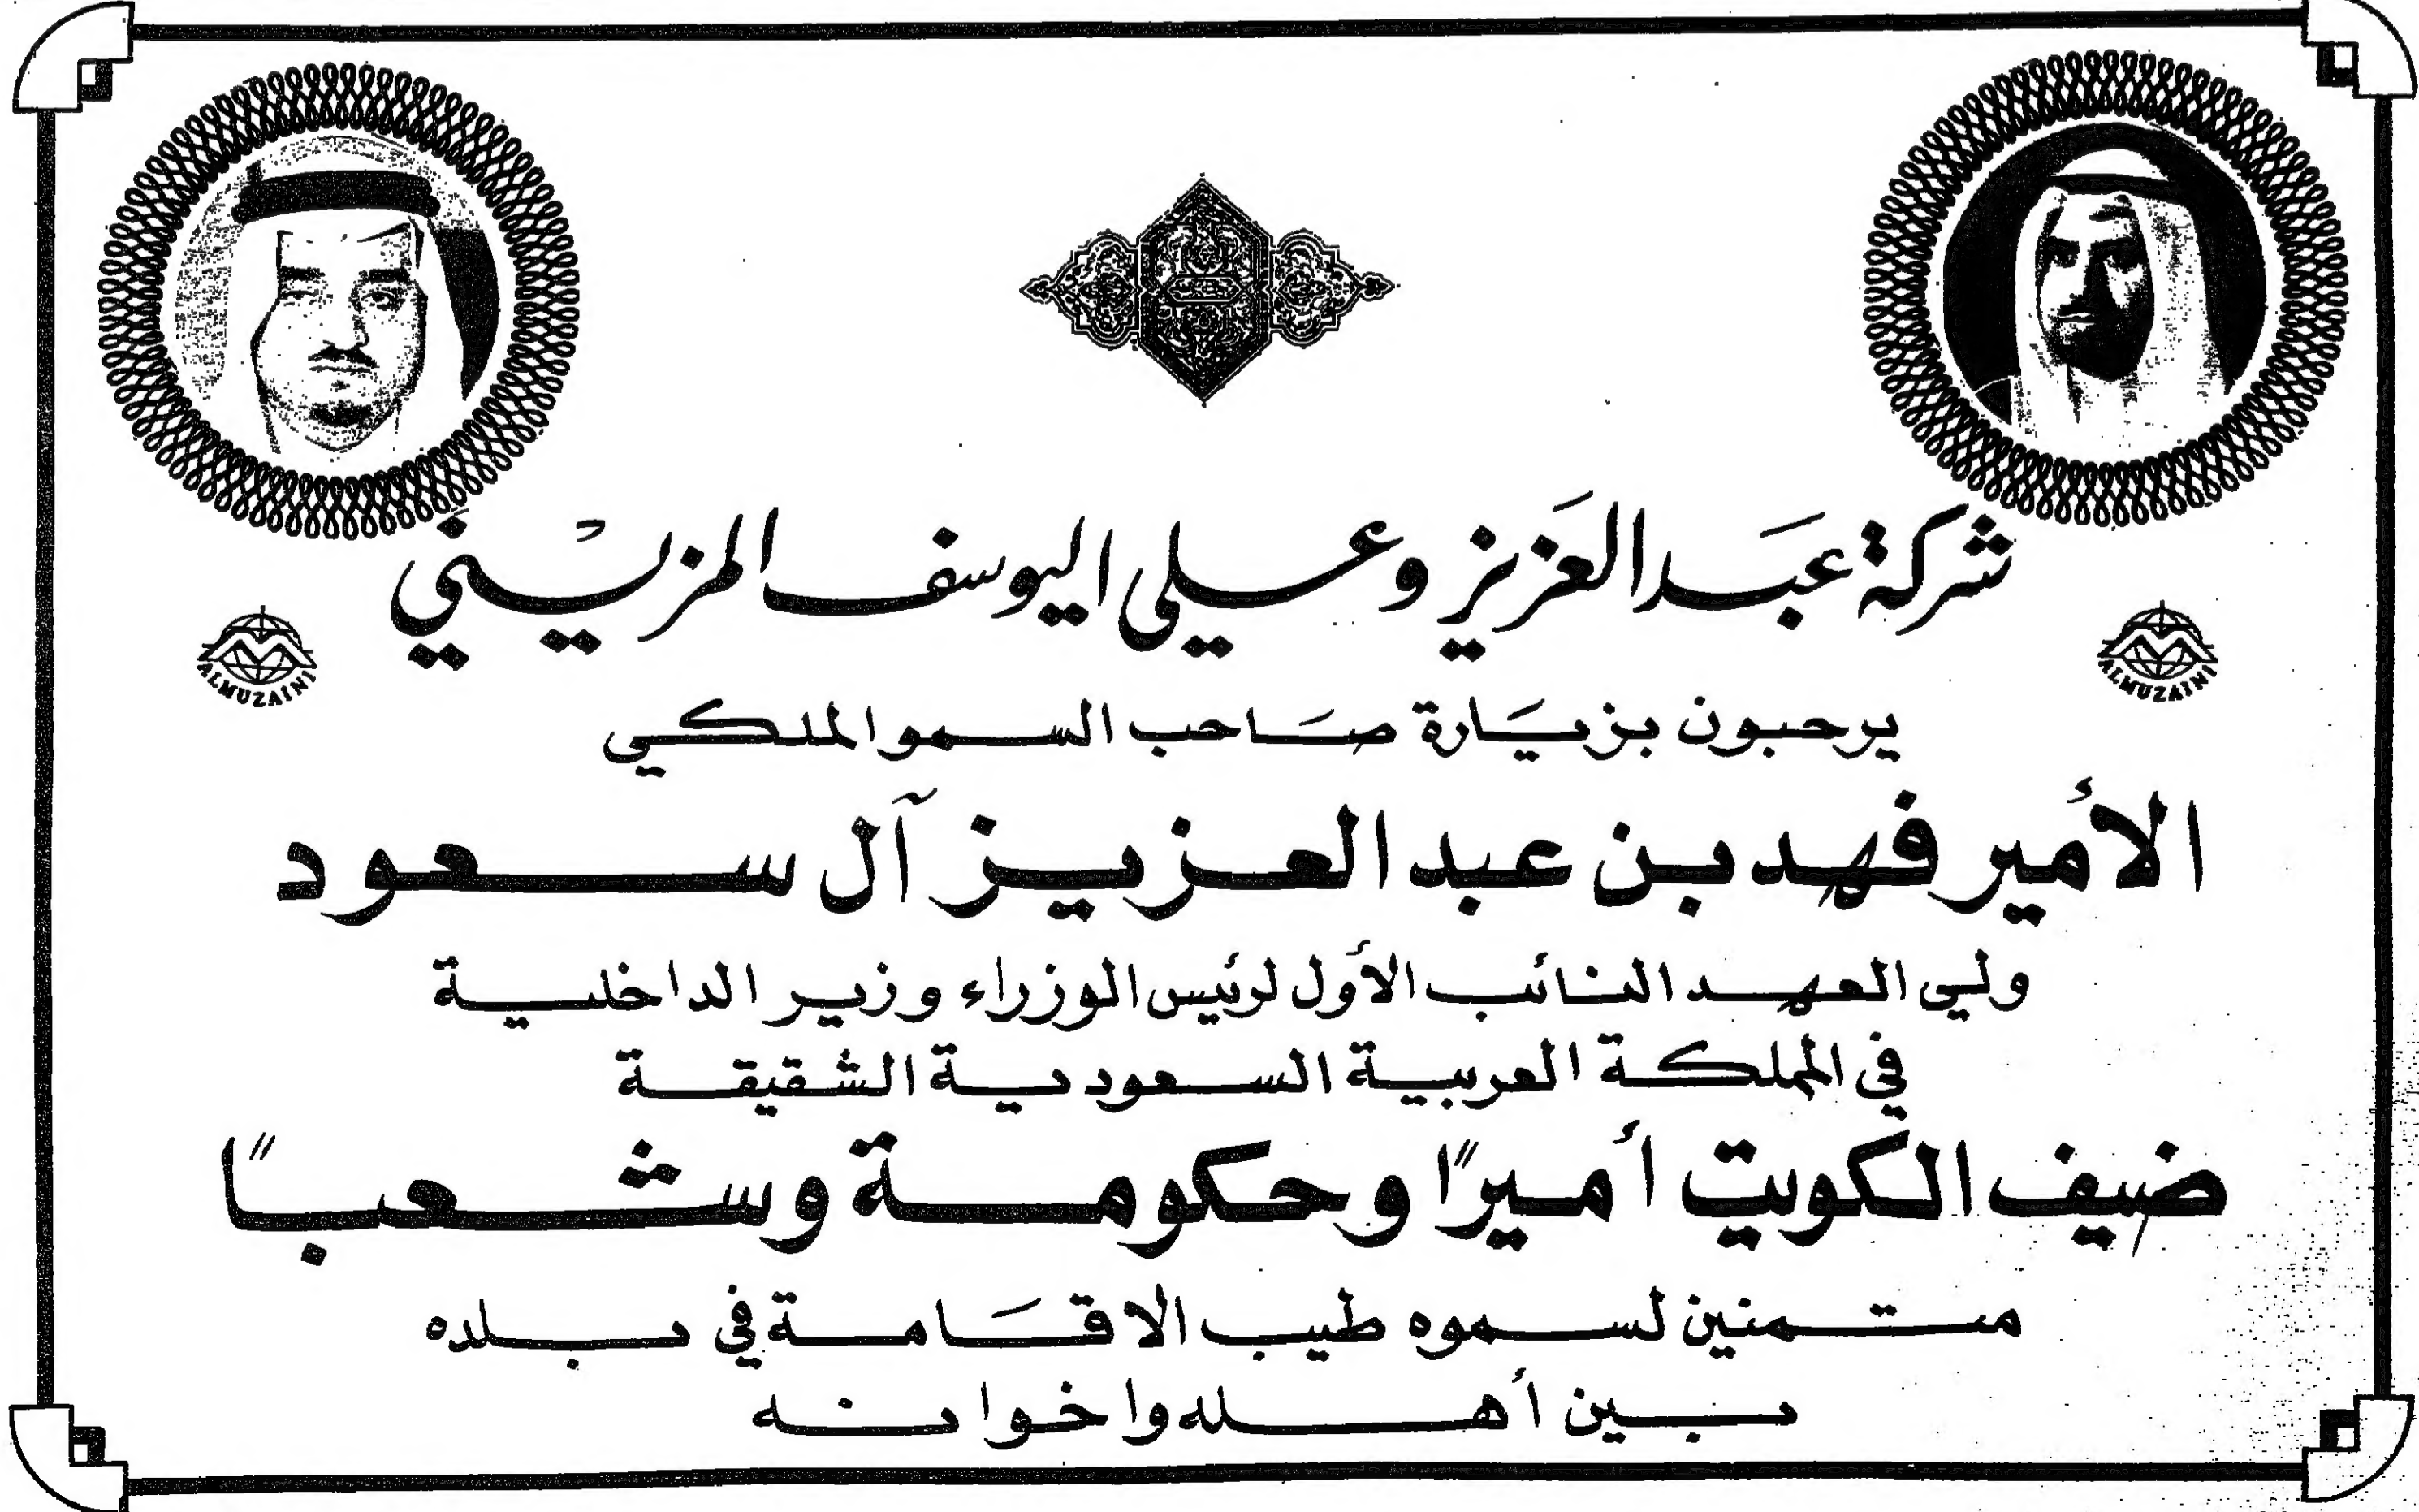 شركة عبد العزيز وعلي اليوسف المزيني
ALMUZAINI
ALMUZAINI
يرحبون بزيارة صاحب السمو الملكي
الأمير فهد بن عبد العزيز آل سعود
ولي العهد النائب الأول لرئيس الوزراء وزير الداخلية
في المملكة العربية السعودية الشقيقة
ضيف الكويت أميرًا وحكومة وشعبًا
متمنين لسموه طيب الاقامة في بلده
بين أهله واخوانه